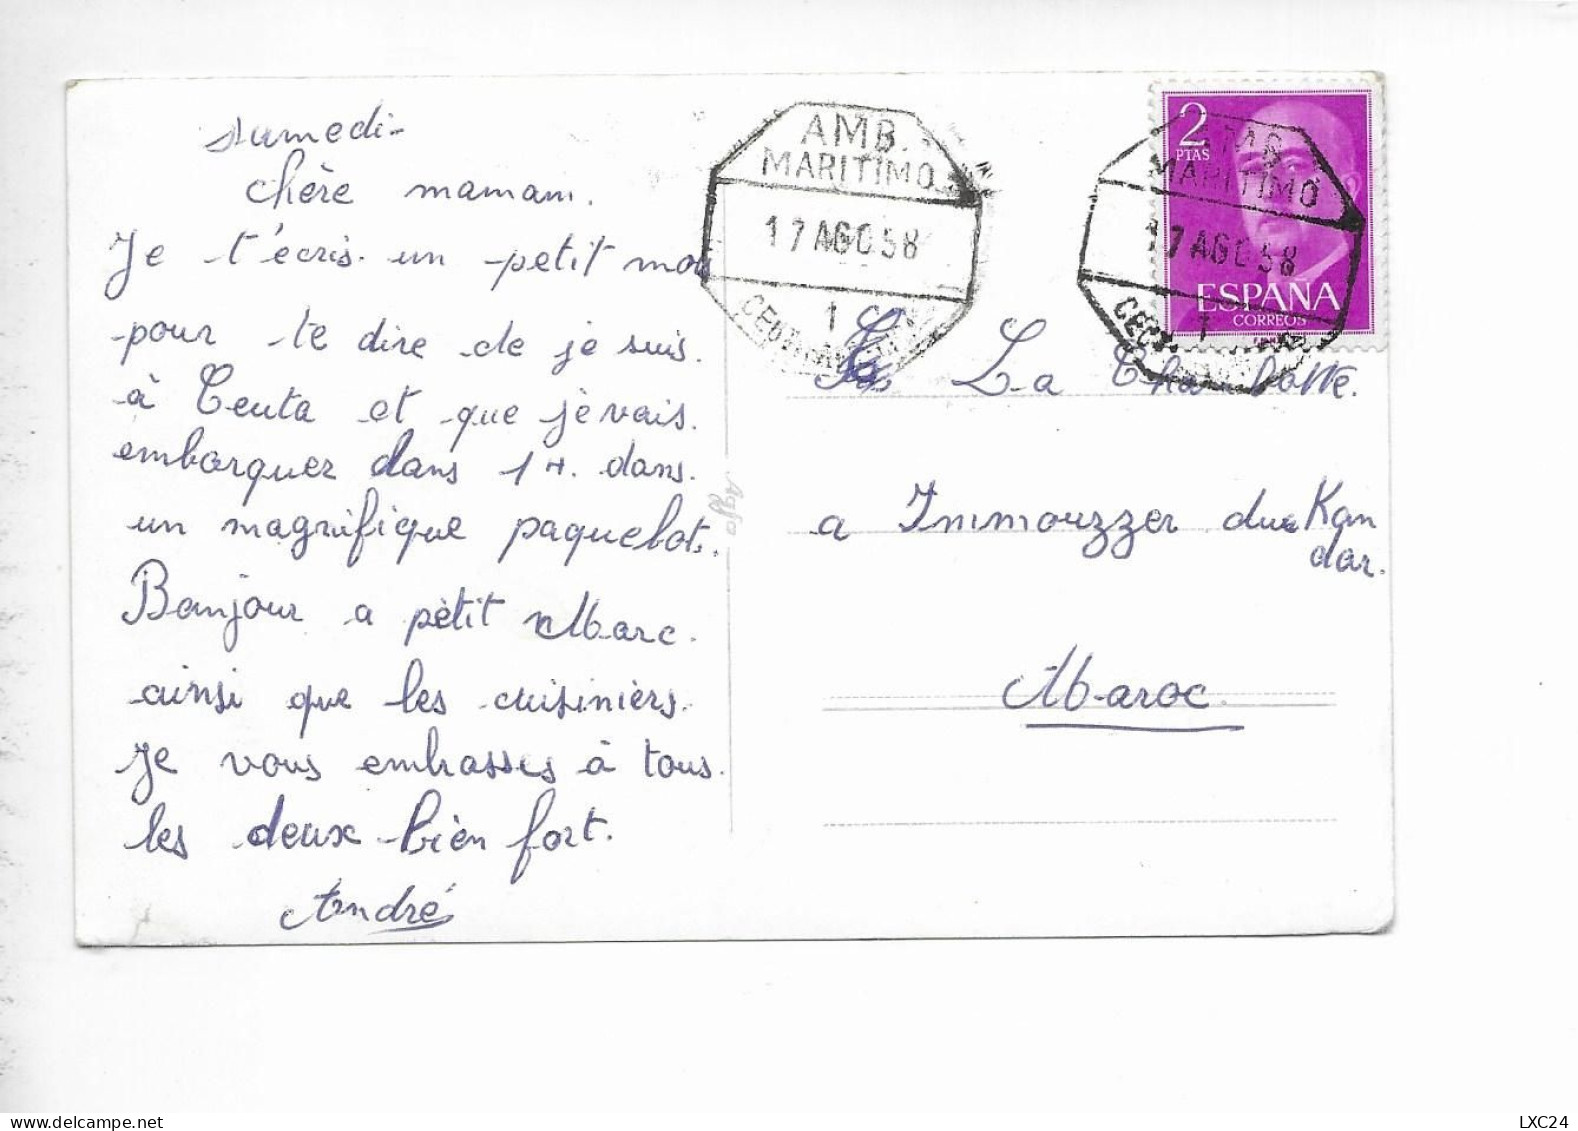 samedi-
chère maman.
Je t'écris. un petit mot
pour te dire de je suis.
à Ceuta et que je vais.
embarquer dans 1 H. dans.
un magnifique paquebot.
Bonjour a petit Marc.
ainsi que les cuisiniers.
Je vous embrasses à tous.
les deux bien fort.
André
AMB.
MARITIMO
17 AGO 58
1
2
PTAS
AMB.
MARITIMO
17 AGO 58
1
ESPAÑA
CORREOS
La Charlotte.
a Immouzzer du Kan
dar.
Maroc.
Agfa
LXC24